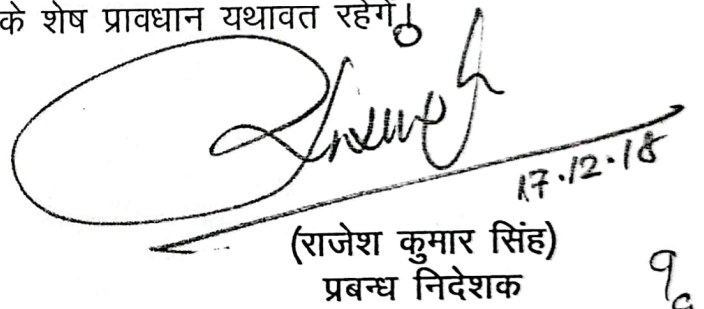 के शेष प्रावधान यथावत रहेगें।
17.12.18
(राजेश कुमार सिंह)
प्रबन्ध निदेशक